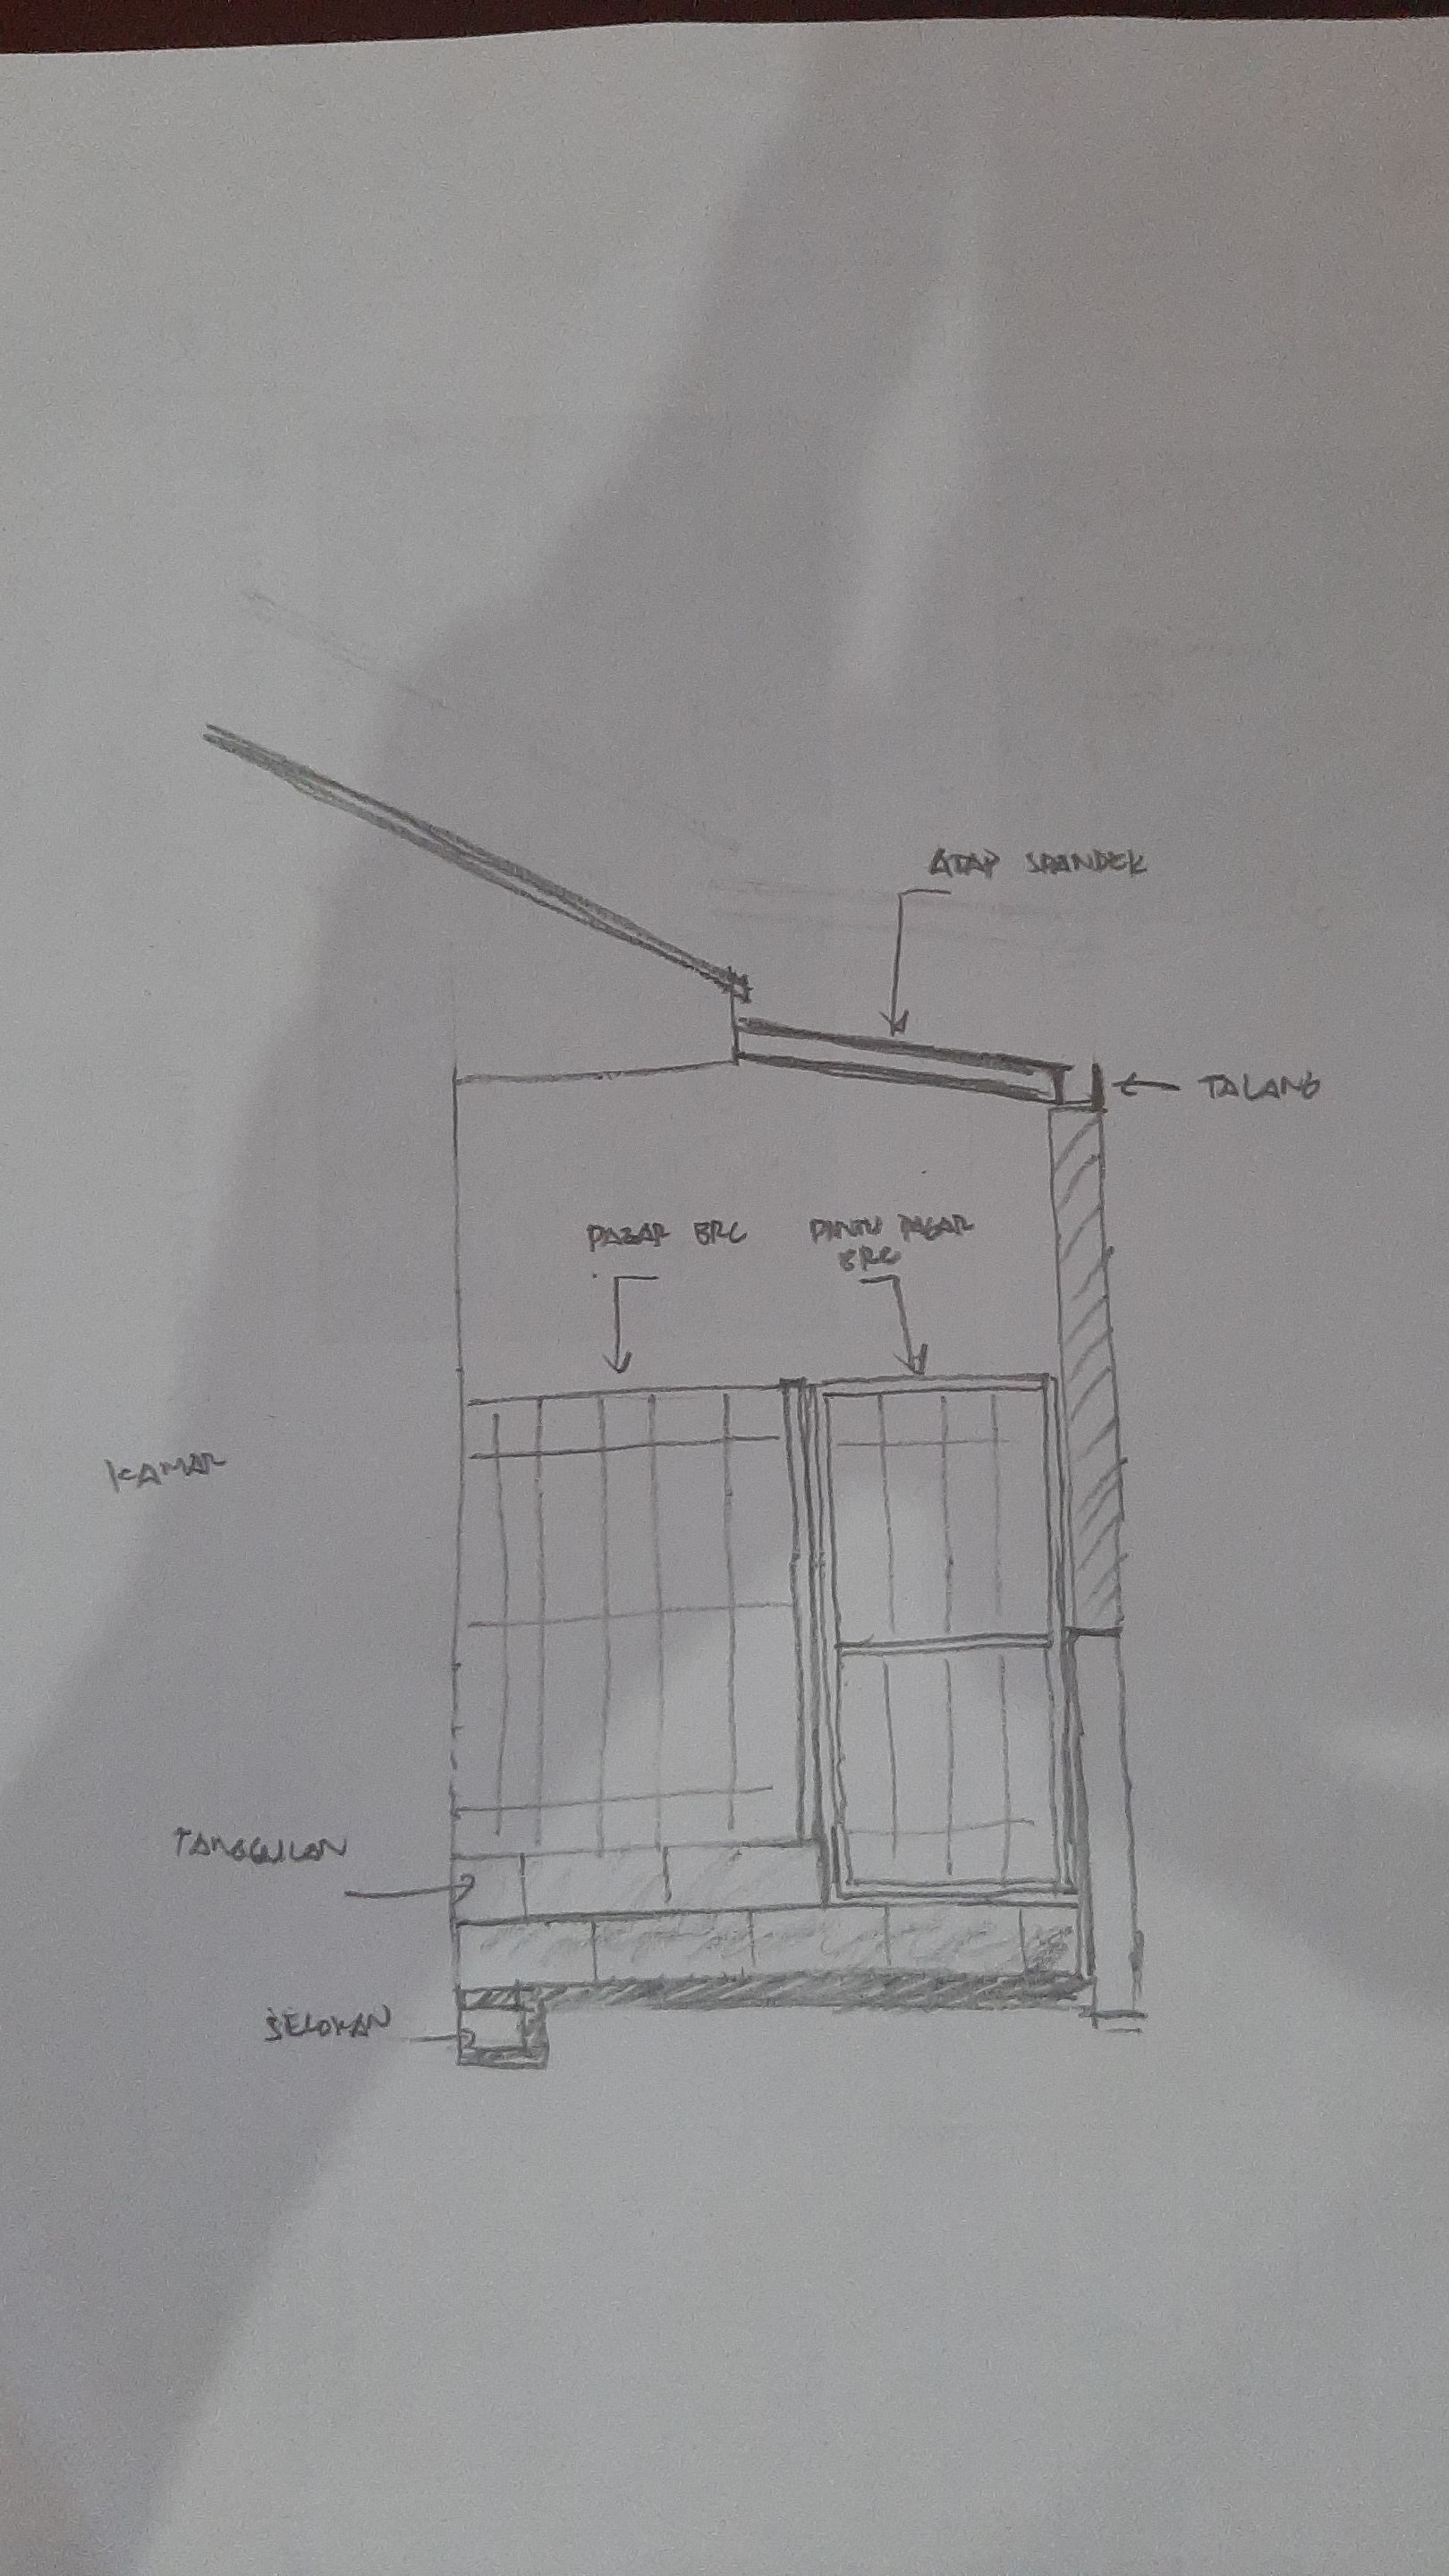 ATAP SPANDEK
TALANG
PAGAR BRC
PINTU PAGAR
BRC
KAMAR
TANGGULAN
SELOKAN